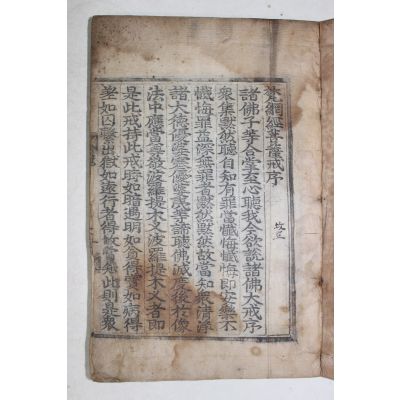 梵網經菩薩戒序
諸佛子等合掌至心聽我今欲說諸佛大戒序
衆集默然聽自知有罪當懺悔懺悔即安樂不
懺悔罪益深無罪者默然默然故當知衆清淨
諸大德優婆塞優婆夷等諦聽佛滅度後於像
法中應當尊敬波羅提木叉波羅提木叉者即
是此戒持此戒時如暗遇明如貧得寶如病得
差如囚繫出獄如遠行者得歸當知此則是衆